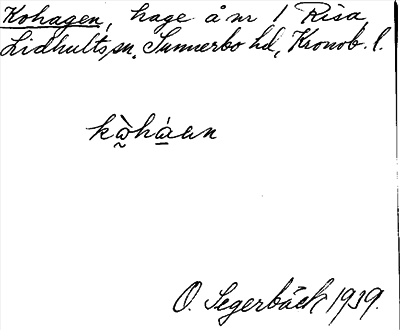 Kohagen, hage å nr 1 Risa,
Lidhults sn, Sunnerbo hd, Kronob. l.
kὼhάөn
O. Segerbäck 1939.